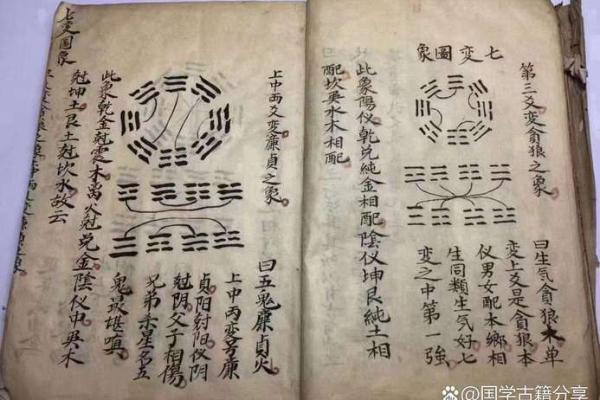 七變圖象
第三爻變貪狼之象
曰生气貪狼木单
變上爻是貪狼本
仪男女配本鄉相
生同類生气好七
變之中第一強
此象陽仪乾兑純金相配陰仪坤艮純土相
配坎巽水木相配
上中两爻變廉貞之象
曰五鬼廉貞火
上中两变号廉
貞阳尅阳仪阴
尅阴父子相傷
兄弟杀星名五
鬼最堪嗔
此象乾金尅震木离火尅兑金陰仪中巽木
尅坤土艮土尅坎水故云
七变圖象
百家号@国学古籍分享